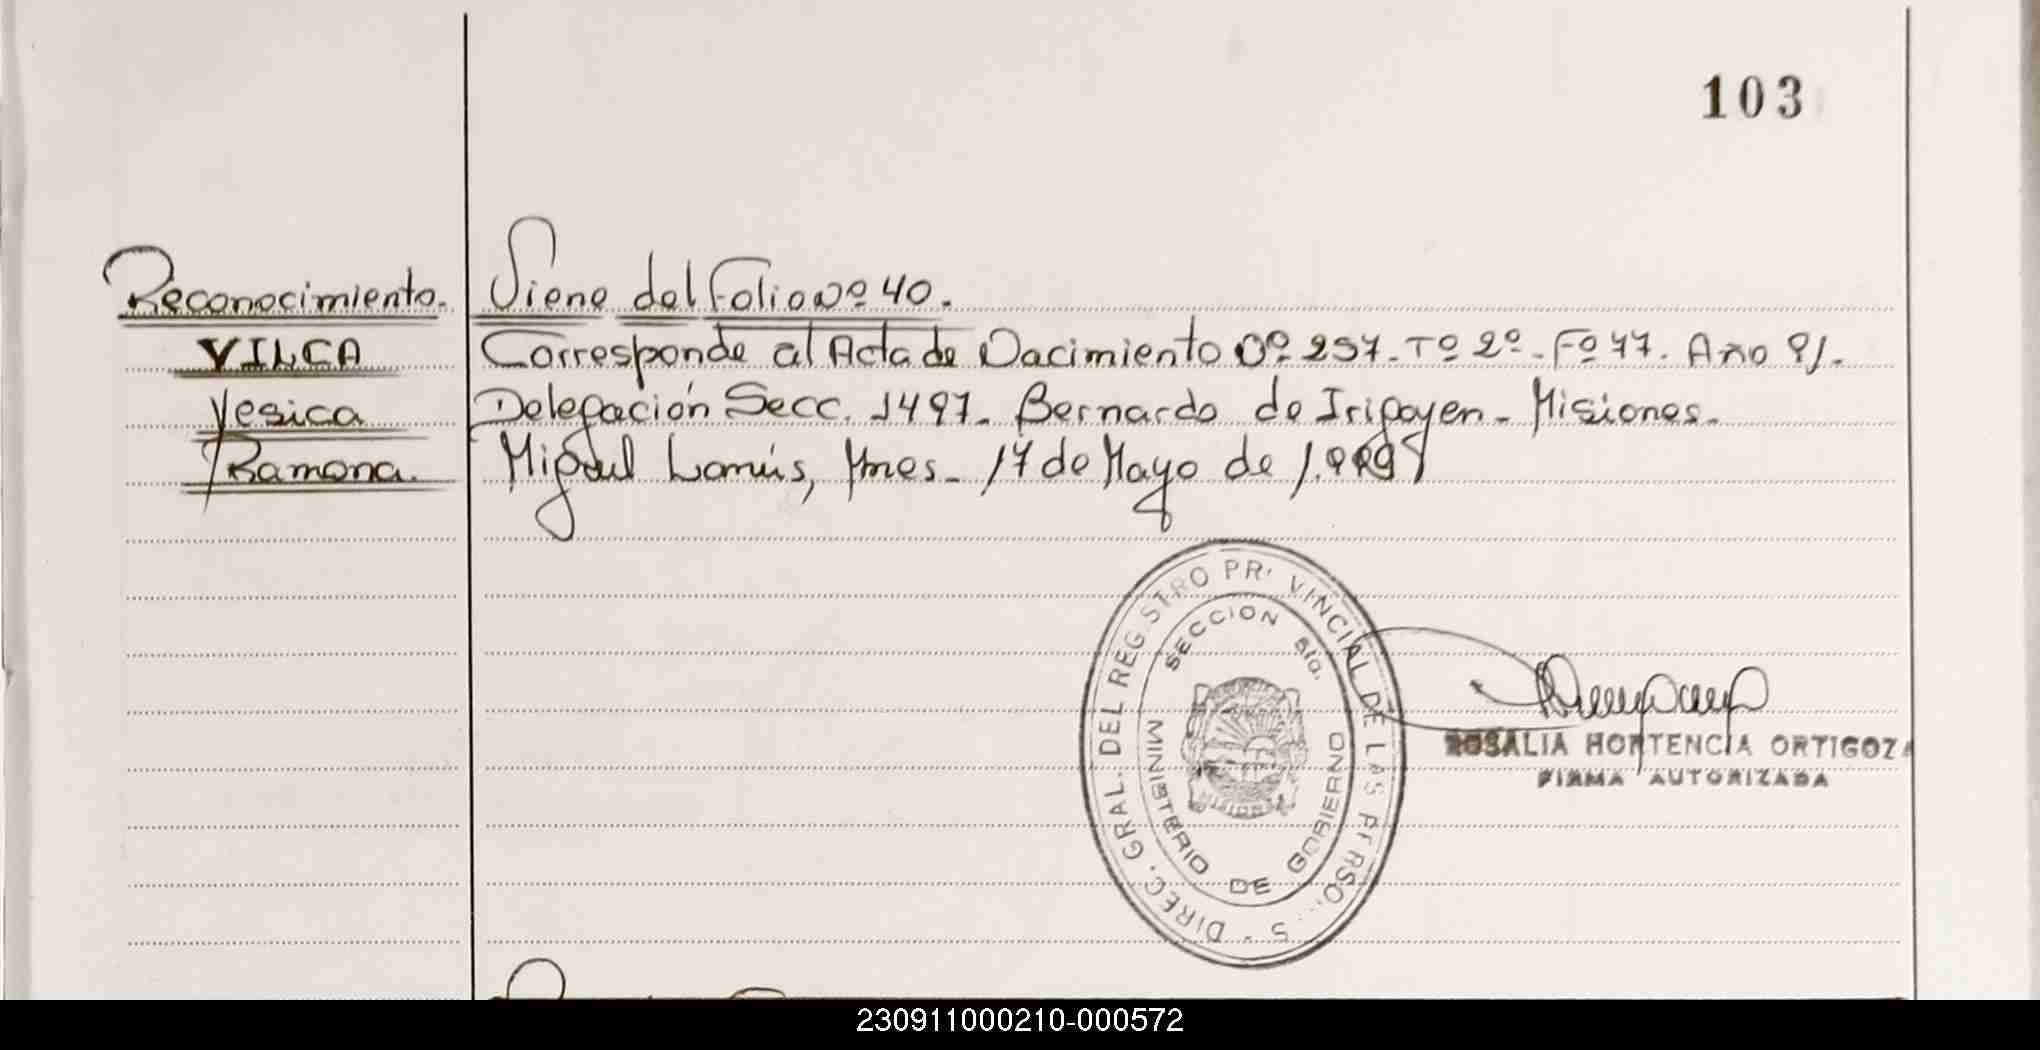 103
Reconocimiento.
VILCA
Yesica
Ramona.
Viene del Folio Nº 40.
Corresponde al Acta de Nacimiento Nº 257. Tº 2º. Fº 47. Año 91.
Delegación Secc. 1497. Bernardo de Irigoyen - Misiones.
Miguel Lanús, Mnes. 17 de Mayo de
DIREC. GRAL. DEL REGISTRO PR VINCIAL DE LAS PERSO S
SECCION 5ta.
MINISTERIO DE GOBIERNO
MISIONES
ROSALIA HORTENCIA ORTIGOZA
FIRMA AUTORIZADA
230911000210-000572